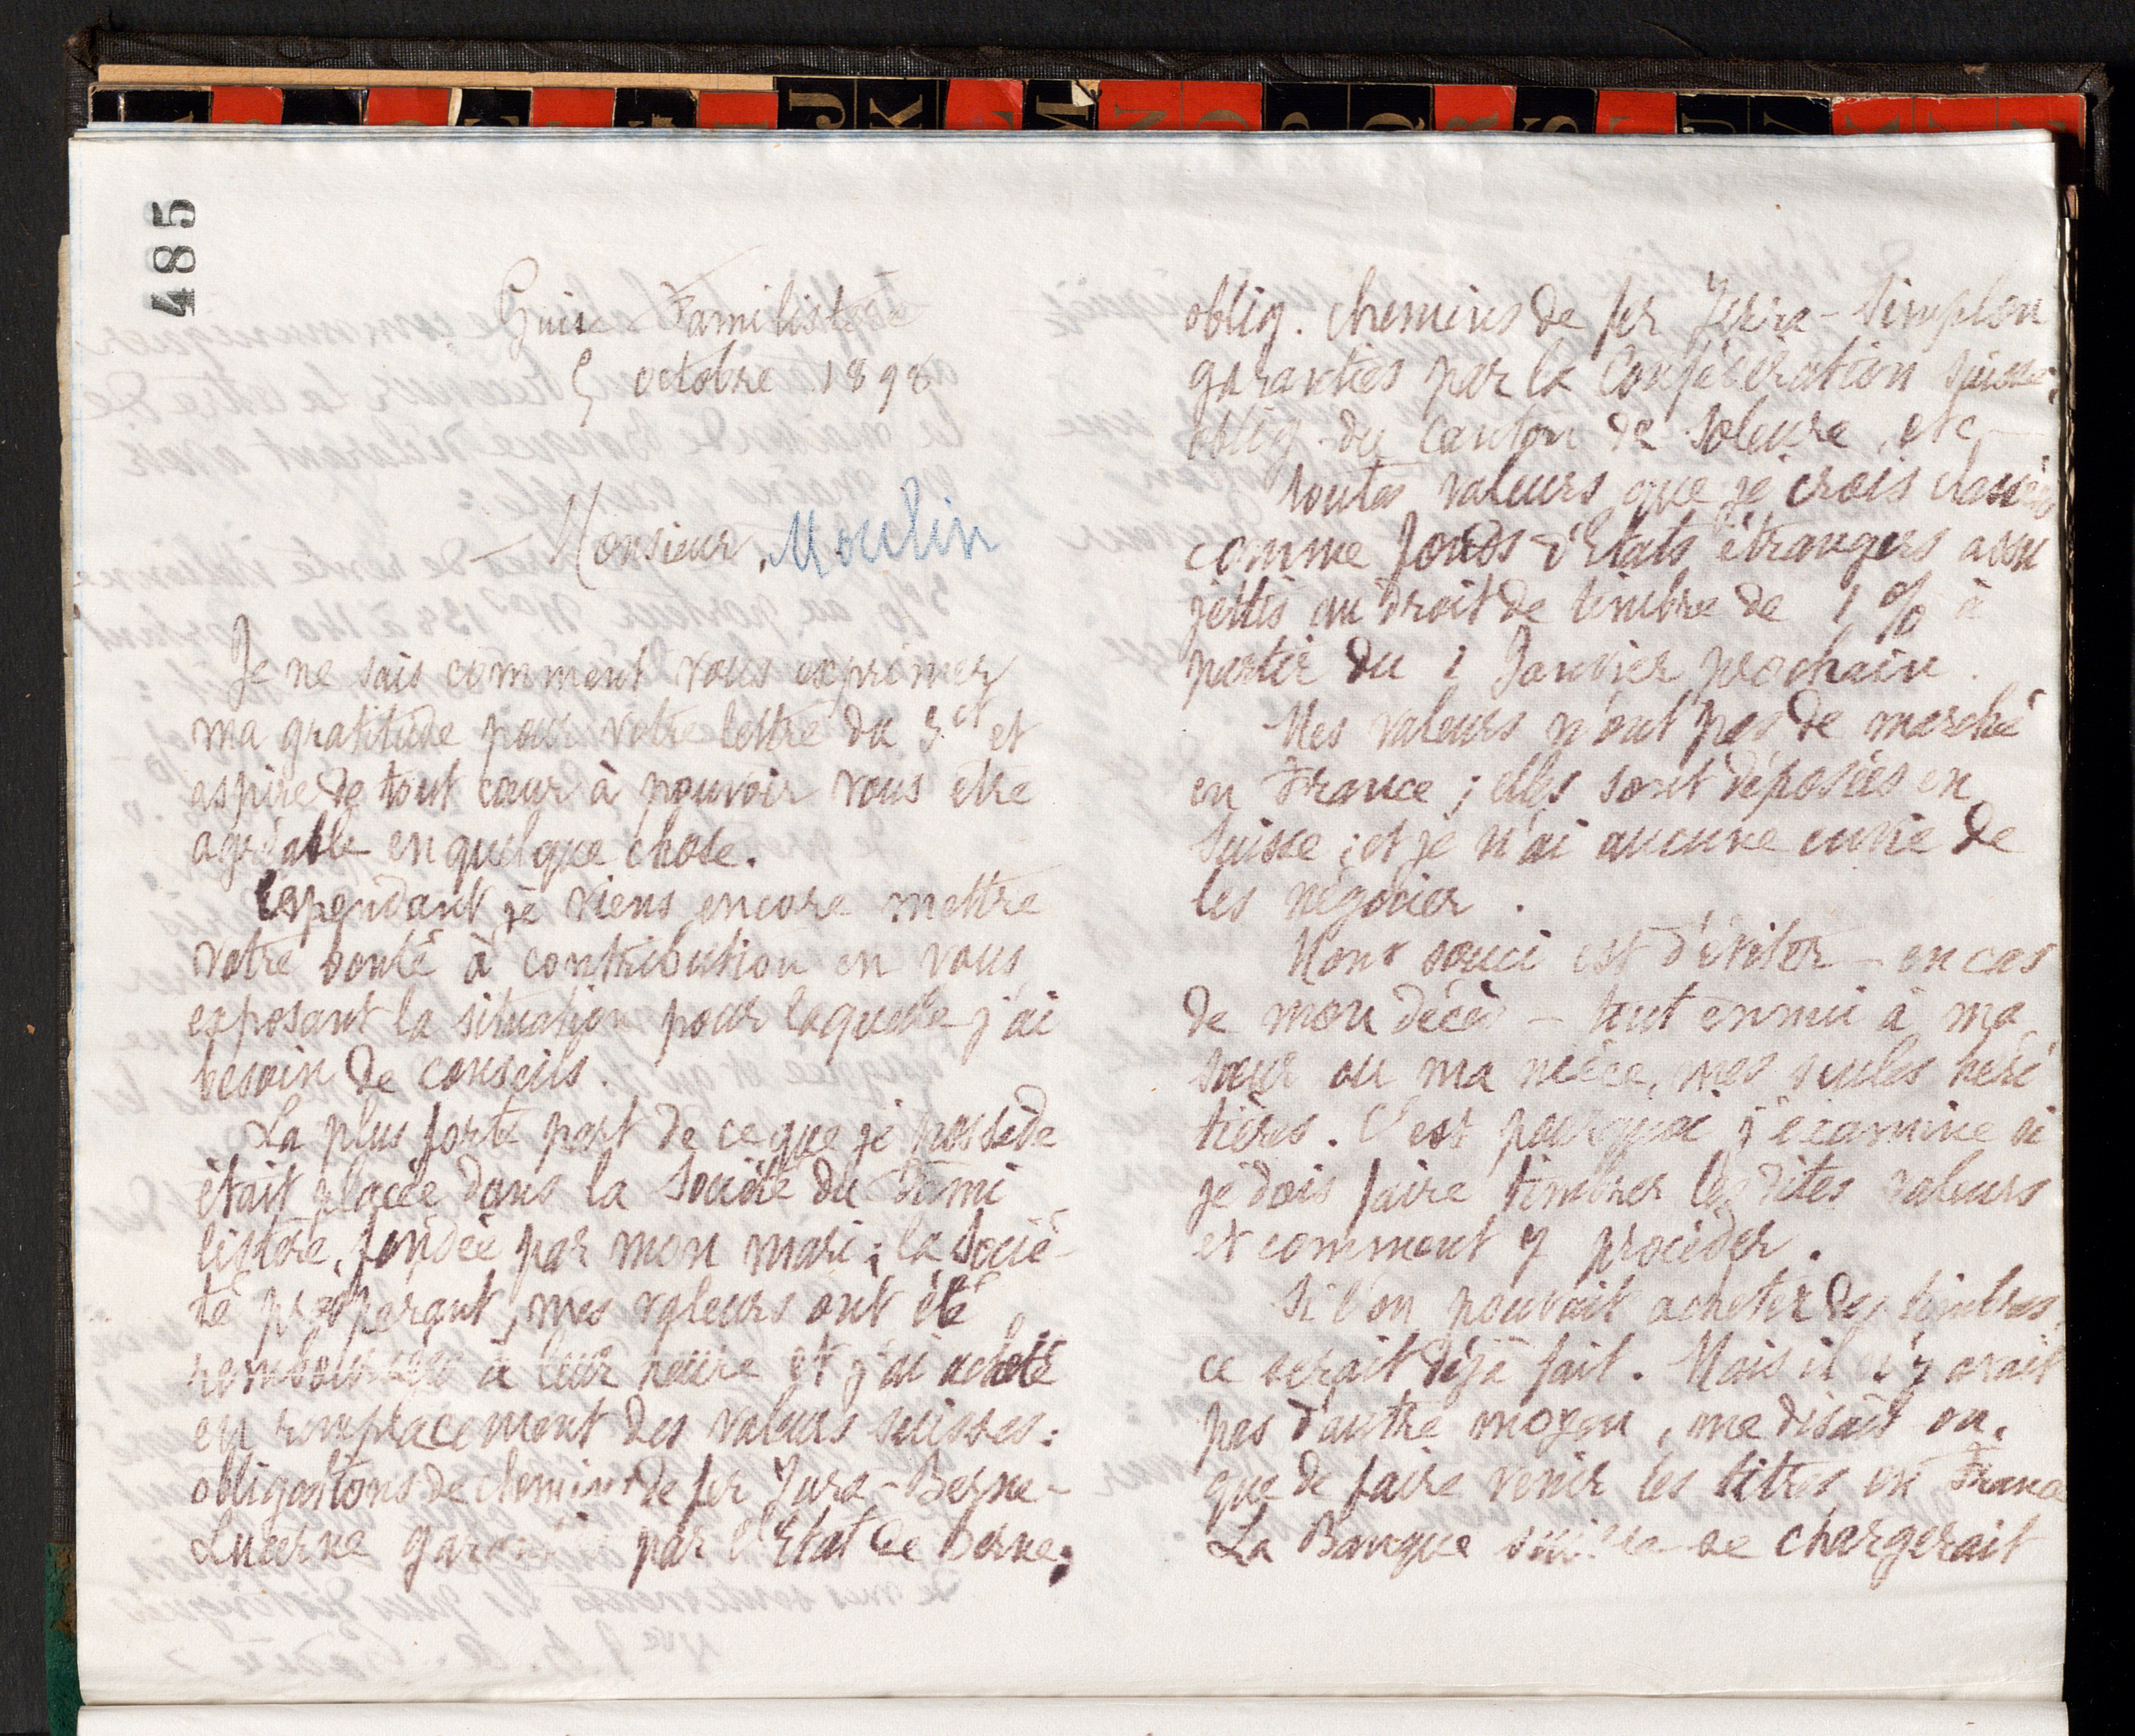 485
Guise Familistère
5 octobre 1898
Monsieur Moulin
Je ne sais comment vous exprimer
ma gratitude pour votre lettre du 3 ct et
aspire de tout cœur à pouvoir vous être
agréable en quelque chose.
Cependant je viens encore mettre
votre bonté à contribution en vous
exposant la situation pour laquelle j'ai
besoin de conseils.
La plus forte part de ce que je possède
était placée dans la Société du Fami
listère, fondée par mon mari ; la Socié-
té prospérant, mes valeurs ont été
remboursées à leur heure et j'ai acheté
en remplacement des valeurs suisses :
obligations de chemins de fer Jura-Berne-
Lucerne garanties par l'Etat de Berne ;
oblig. chemins de fer Jura-Simplon
garanties par la Confédération suisse ;
oblig. du canton de Soleure, etc. —
toutes valeurs que je crois classées
comme fonds d'Etats étrangers assu
jettis au droit de timbre de 1 % à
partir du 1 Janvier prochain.
Mes valeurs n'ont pas de marché
en France ; elles sont déposées en
Suisse ; et je n'ai aucune envie de
les négocier.
Mon souci est d'éviter - en cas
de mon décès - tout ennui à ma
sœur ou ma nièce, mes seules héri
tières. C'est pourquoi j'examine si
je dois faire timbrer les dites valeurs
et comment y procéder.
Si l'on pouvait acheter des timbres,
ce serait déjà fait. Mais il n'y avait
pas d'autre moyen, me disait on,
que de faire venir les titres en France
La Banque suisse se chargerait
J
K
L
M
N
O
P
Q
R
S
T
U
V